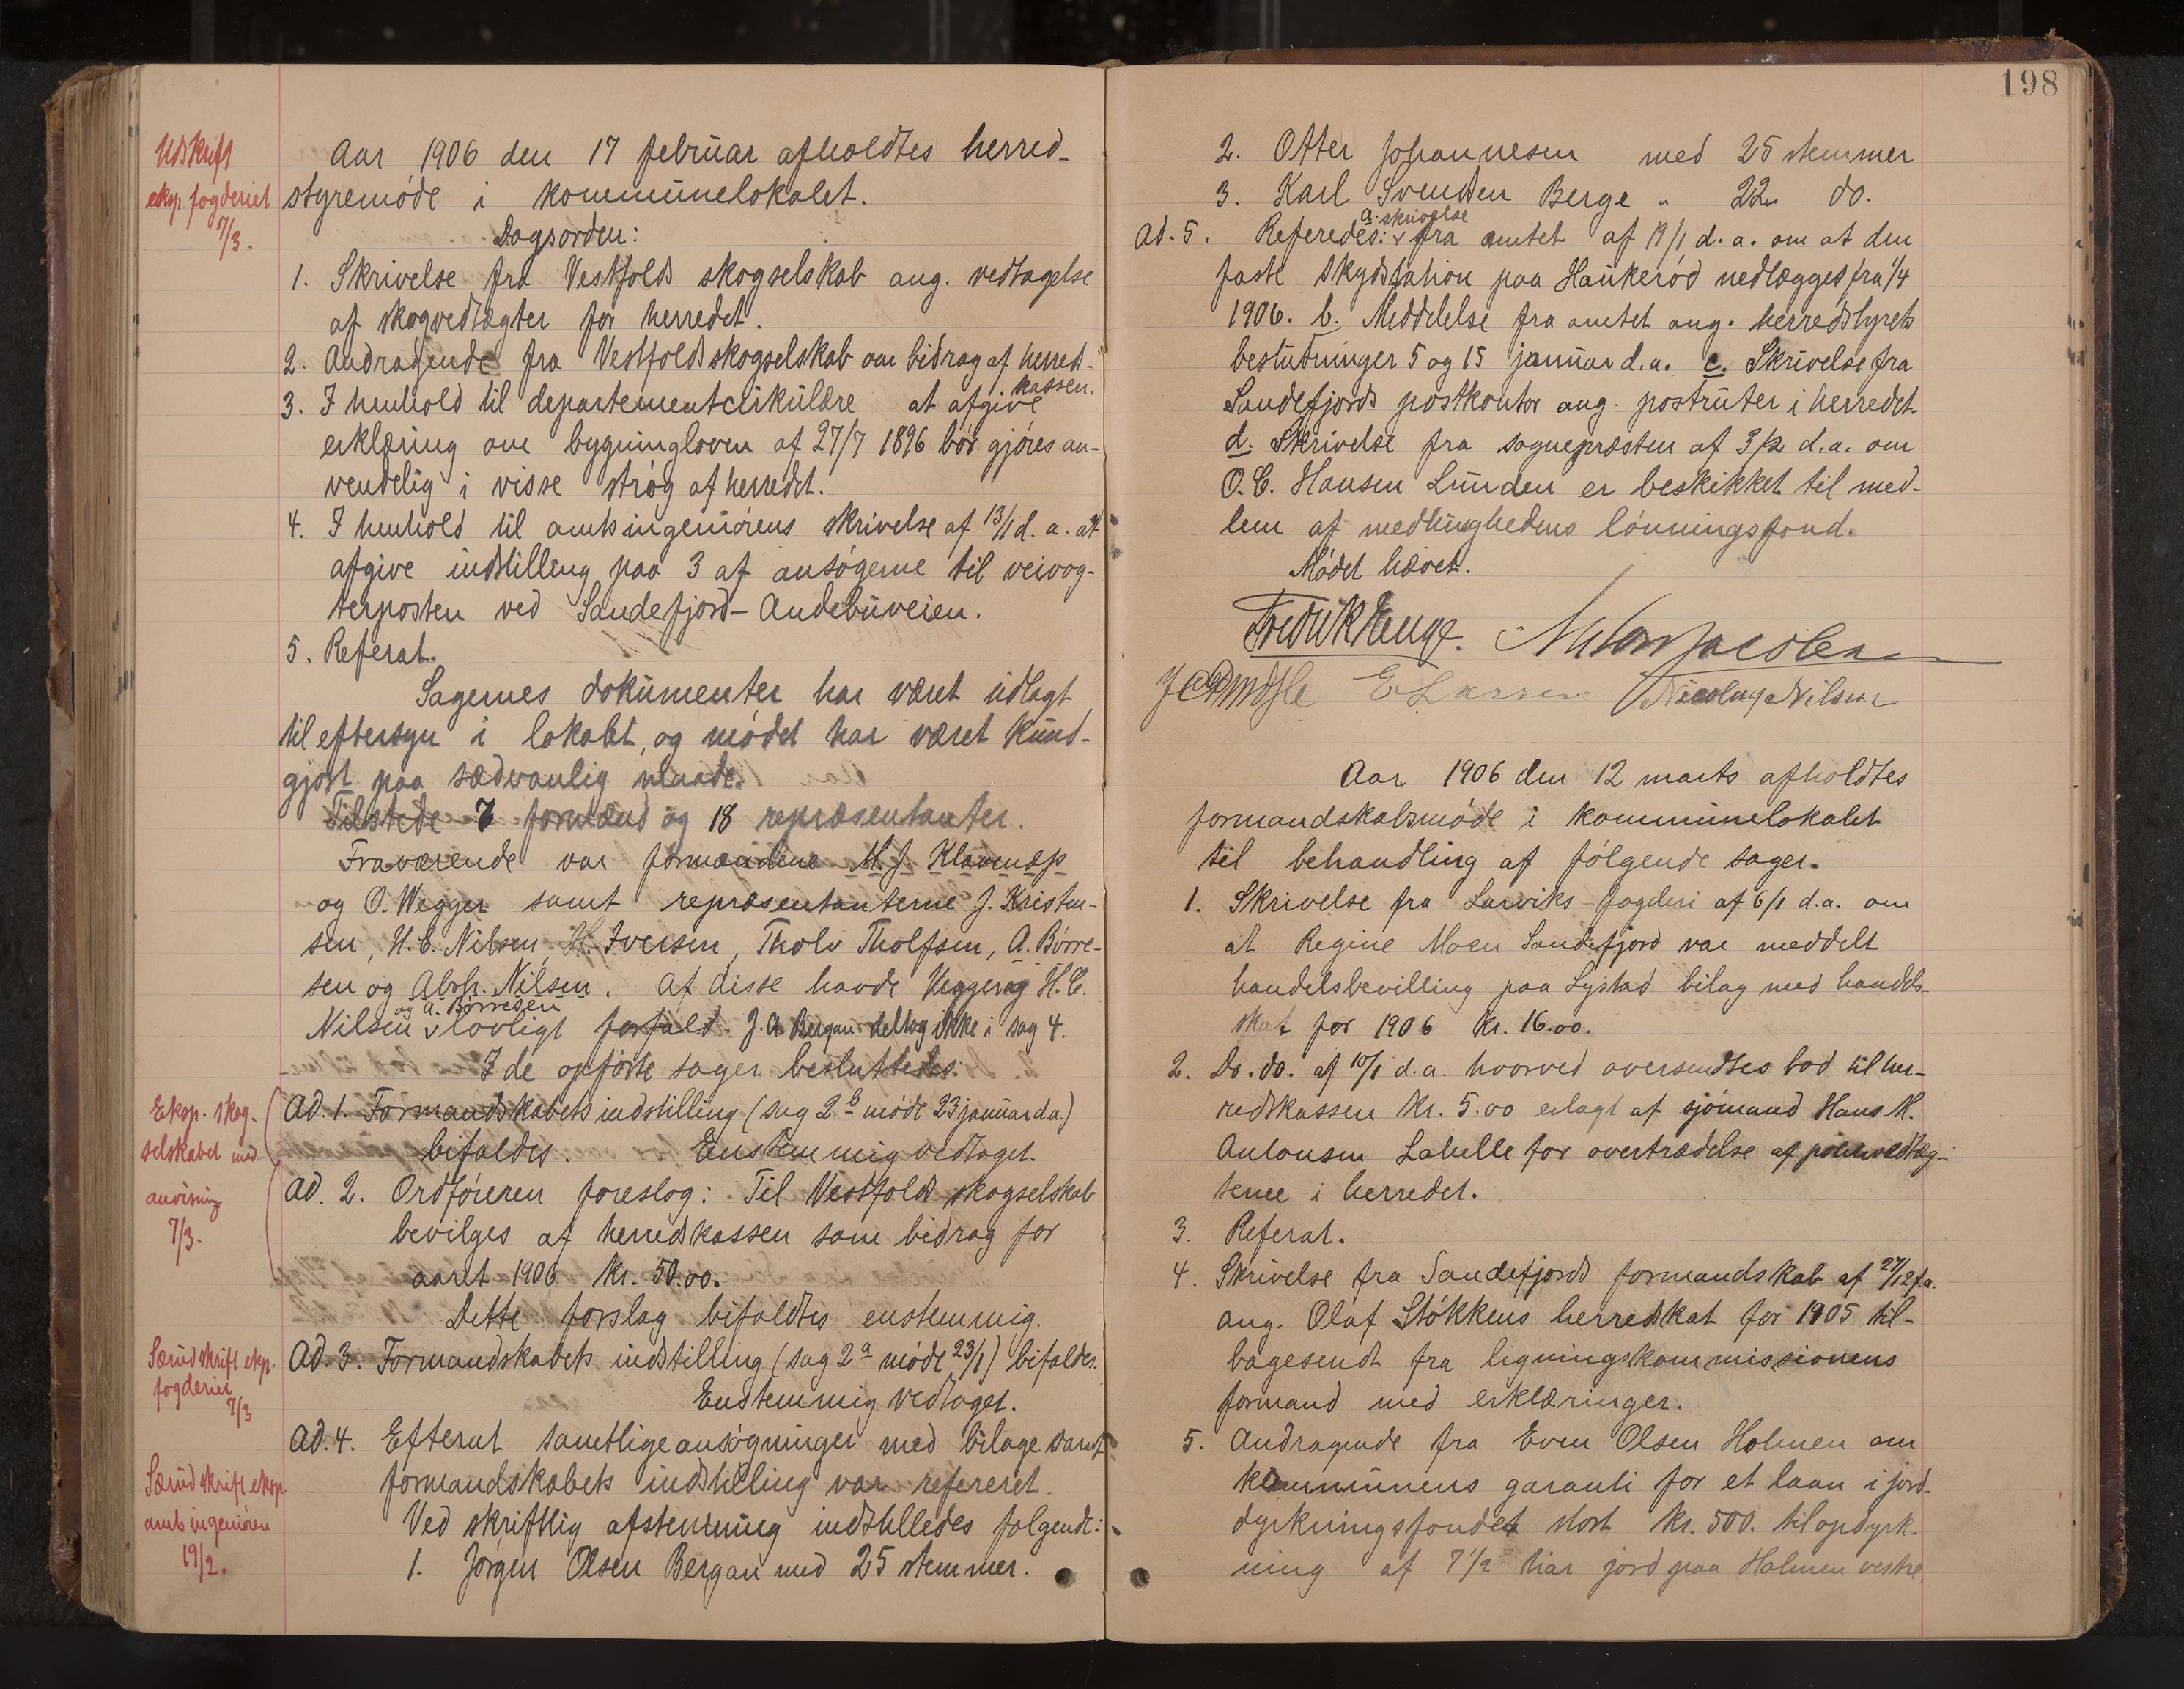 Udskrift
eksp. fogderiet
7/3.
Aar 1906 den 17 februar afholdtes herred-
styremøde i kommunelokalet.
Dagsorden:
1. Skrivelse fra Vestfolds skogselskab ang. vedtagelse
af skogvedtægter for herredet.
2. Andragende fra Vestfolds skogselskab om bidrag af herred-
kassen.
3. I henhold til departementcirkulære at afgive
erklæring om bygningloven af 27/7 1896 bør gjøres an-
vendelig i visse strøg af herredet.
4. I henhold til amtsingeniørens skrivelse af 13/1 d. a. at
afgive indstilling paa 3 af ansøgerne til veivog-
terposten ved Sandefjord-Andebuveien.
5. Referat.
Sagernes dokumenter har været udlagt
til eftersyn i lokalet, og mødet har været kund-
gjort paa sædvanlig maade.
Tilstede 7 formænd og 18 repræsentanter.
Fraværende var formændene M. J. Klavenæs
og O. Wegger samt repræsentanterne J. Kristen-
sen, H. C. Nilsen, H. Iversen, Tholv Tholfsen, A. Børre-
sen og Abrh. Nilsen. Af disse havde Wegger og H. C.
og A. Børresen
Nilsen lovligt forfald. J. A. Bergan deltog ikke i sag 4.
I de opførte sager besluttedes:
Eksp. skog-
selskabet med
anvisning
7/3.
Ad. 1. Formandskabets indstilling (sag 2 b møde 23 januar d.a.)
bifaldes. Enstemmig vedtaget.
Ad. 2. Ordføreren foreslog: Til Vestfolds skogselskab
bevilges af herredskassen som bidrag for
aaret 1906 kr. 50.00.
Dette forslag bifaldtes enstemmig.
Særudskrift eksp.
fogderiet
7/3
Ad. 3. Formandskabets indstilling (sag 2 a møde 23/1) bifaldes.
Enstemmig vedtaget.
Ad. 4. Efterat samtlige ansøgninger med bilage samt
formandskabets indstilling var refereret.
Særudskrift eksp.
amtsingeniøren
19/2.
Ved skriftlig afstemning indstilledes følgende:
1. Jørgen Olsen Bergan med 25 stemmer.
198
2. Otter Johannesen med 25 stemmer
3. Karl Svendsen Berge " 22 do.
a. skrivelse
Ad. 5. Referedes: fra amtet af 19/1 d. a. om at den
faste skydsstation paa Haukerød nedlægges fra 1/4
1906. b. Meddelelse fra amtet ang. herredstyrets
beslutninger 5 og 15 januar d. a. c. Skrivelse fra
Sandefjords postkontor ang. postruter i herredet.
d. Skrivelse fra sognepræsten af 3/2 d. a. om
O. C. Hansen Lunden er beskikket til med-
lem af medlinghedens lønningsfond.
Mødet hævet.
Fredrik Enge. Anton Jacobsen
E Larsen Nicolay Nilsen
Aar 1906 den 12 marts afholdtes
formandskabsmøde i kommunelokalet
til behandling af følgende sager.
1. Skrivelse fra Larviks fogderi af 6/1 d. a. om
at Regine Moen Sandefjord var meddelt
handelsbevilling paa Lystad bilag med handels-
skat for 1906 kr. 16.00.
2. Do. do. af 10/1 d. a. hvorved oversendtes bod til her-
redskassen kr. 5.00 erlagt af sjømand Hans M.
Antonsen Lahelle for overtrædelse af politivedtæg-
tene i herredet.
3. Referat.
4. Skrivelse fra Sandefjords formandskab af 27/12 f.a.
ang. Olaf Støkkens herredskat for 1905 til-
bagesendt fra ligningskommissionens
formand med erklæringer.
5. Andragende fra Even Olsen Holmen om
kommunens garanti for et laan i jord-
dyrkningsfondet stort kr. 500. til opdyrk-
ning af 7 1/2 har jord paa Holmen vestre